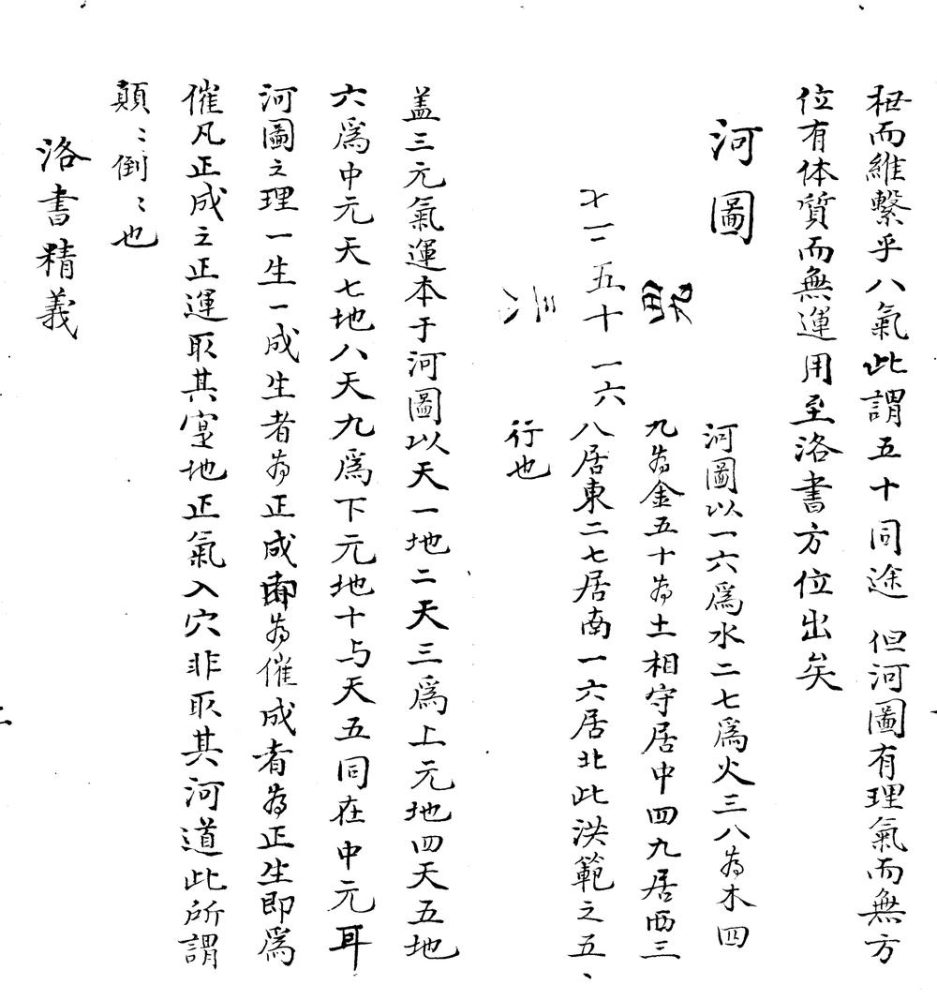 極而維繫乎八氣此謂五十同途 但河圖有理氣而無方
位有体质而無運用至洛書方位出矣
河圖
河圖以一六爲水二七爲火三八為木四
九為金五十為土相守居中四九居西三
八居東二七居南一六居北此洪範之五、
行也
二七
三八
五十
四九
一六
盖三元氣運本于河圖以天一地二天三爲上元地四天五地
六爲中元天七地八天九爲下元地十与天五同在中元耳
河圖之理一生一成生者為正成即為催成者為正生即爲
催凡正成之正運取其寔地正氣入穴非取其河道此所謂
顛〻倒〻也
洛書精義